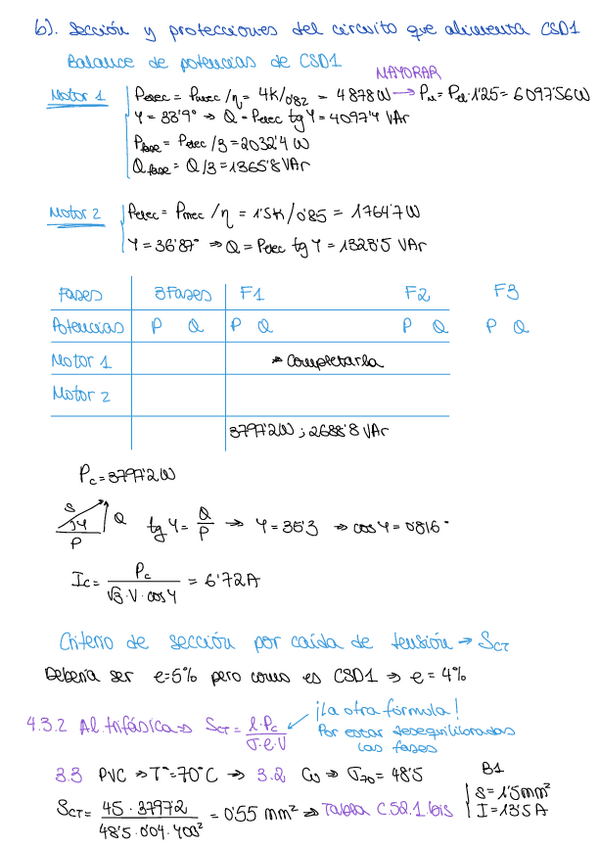 b). Sección y protecciones del circuito que alimenta CSD1
Balance de potencias de CSD1
MAYORAR
Motor 1 Pelec = Pmec/η = 4K/0'82 = 4878W → PM = Pel·1'25 = 6097'56W
φ = 33'9° → Q = Pelec tg φ = 4097'4 VAr
Pfase = Pelec/3 = 2032'4 W
Qfase = Q/3 = 1365'8 VAr
Motor 2 Pelec = Pmec/η = 1'5K/0'85 = 1764'7W
φ = 36'87° ⇒ Q = Pelec tg φ = 1323'5 VAr
FASES 3FASES F1 F2 F3
Potencias P Q P Q P Q P Q
Motor 1 → Completarla
Motor 2
3797'2W ; 2688'8 VAr
Pc = 3797'2W
S φ Q P tg φ = Q/P → φ = 35'3 ⇒ cos φ = 0'816
Ic = Pc / √3·V·cos φ = 6'72A
Criterio de sección por caída de tensión → SCT
Debería ser e=5% pero como es CSD1 ⇒ e = 4%
4.3.2 Al trifásica → SCT = l·Pc / σ·e·V ¡La otra fórmula!
Por estar desequilibradas
las fases
3.3 PVC → Tª=70°C → 3.2 Cu → σ70 = 48'5 B1
SCT = 45 · 3797'2 / 48'5 · 0'04 · 400² = 0'55 mm² ⇒ Tabla C.52.1.bis S = 1'5mm²
I = 13'5 A